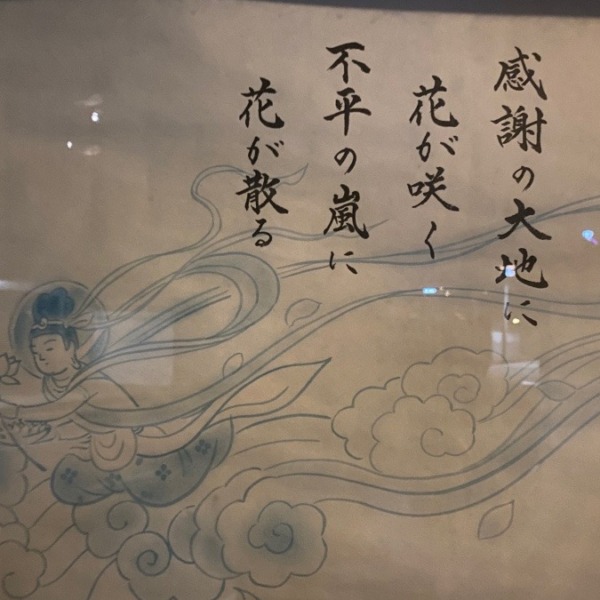 感謝の大地に
花が咲く
不平の嵐に
花が散る